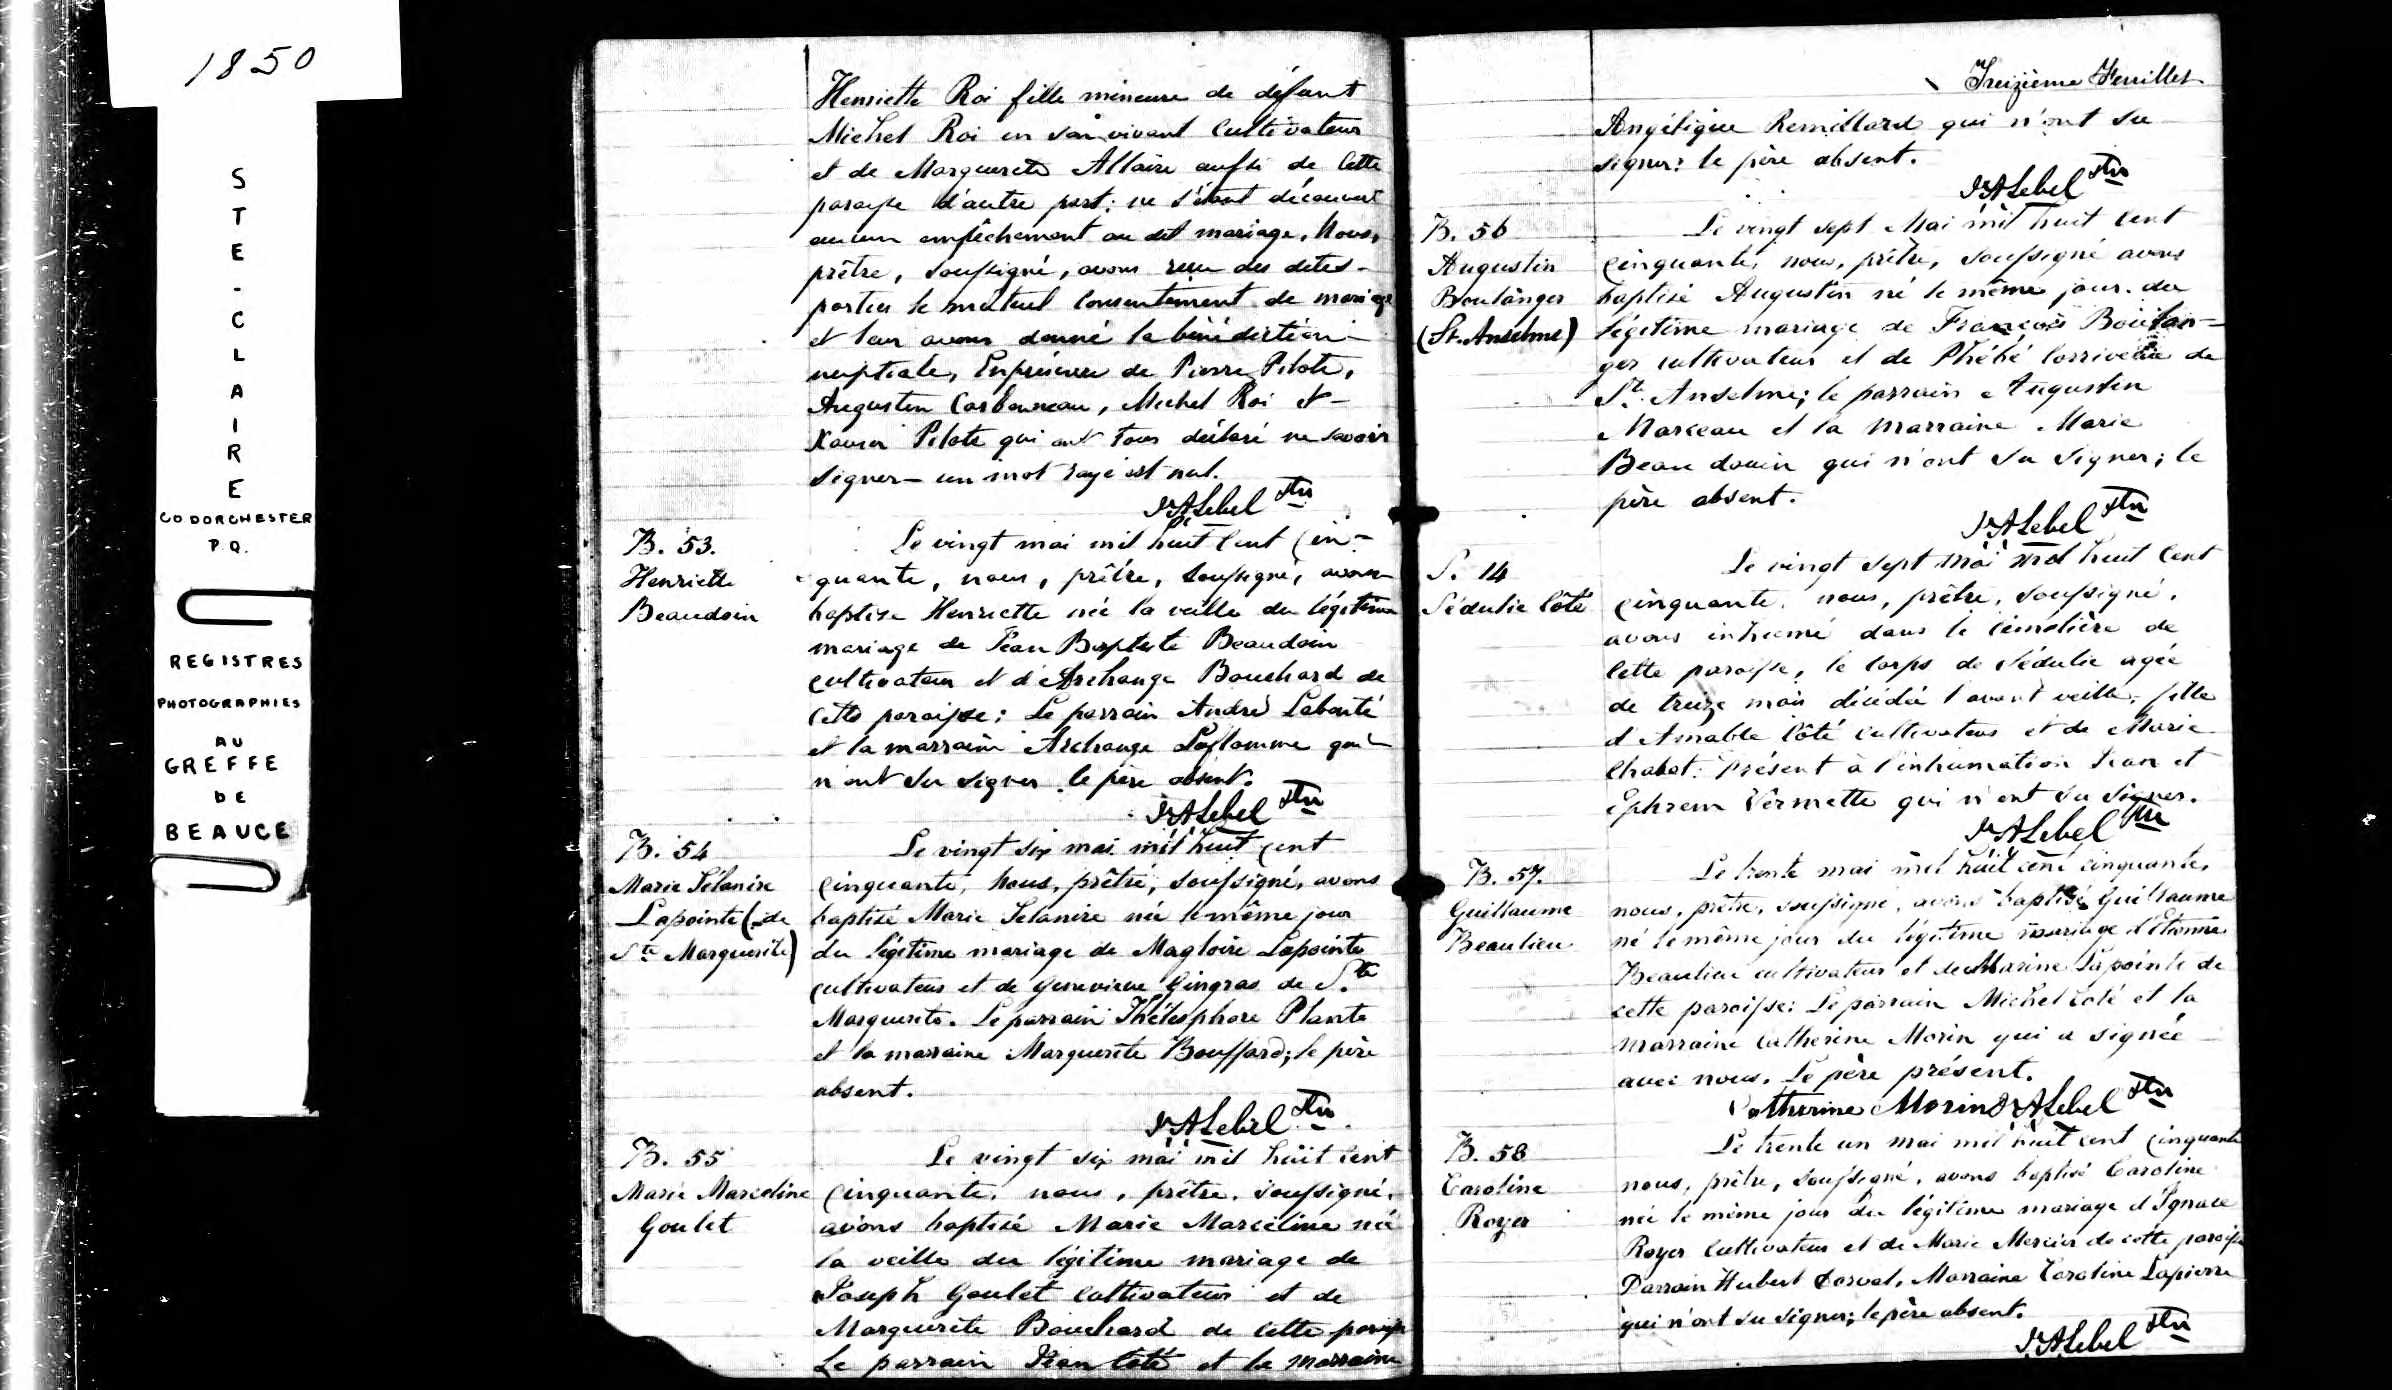 1850
STE-CLAIRE
CO DORCHESTER
P.Q.
REGISTRES
PHOTOGRAPHIES
AU
GREFFE
DE
BEAUCE
Henriette Roi fille mineure de défunt
Michel Roi en son vivant cultivateur
et de Marguerite Allaire aussi de cette
paroisse d'autre part; ne s'étant découvert
aucun empêchement au dit mariage, Nous,
prêtre, soussigné, avons reçu des dites
parties le mutuel consentement de mariage
et leur avons donné la bénédiction
nuptiale, En présence de Pierre Pilote,
Augustin Carbonneau, Michel Roi et
Xavier Pilote qui ont tous déclaré ne savoir
signer - un mot rayé est nul.
JALebel Ptre
B. 53.
Henriette
Beaudoin
Le vingt mai mil huit cent cin-
quante, nous, prêtre, soussigné, avons
baptisé Henriette née la veille du légitime
mariage de Jean Baptiste Beaudoin
cultivateur et d'Archange Bouchard de
cette paroisse: Le parrain André Labonté
et la marraine Archange Laflamme qui
n'ont su signer le père absent.
JALebel Ptre
B. 54
Marie Sélanire
Lapointe (de
Ste Marguerite)
Le vingt six mai mil huit cent
cinquante, nous, prêtre, soussigné, avons
baptisé Marie Selanire née le même jour
du légitime mariage de Magloire Lapointe
cultivateur et de Genevieve Gingras de Ste
Marguerite. Le parrain Thélesphore Plante
et la marraine Marguerite Bouffard; le père
absent.
JALebel Ptre
B. 55
Marie Marceline
Goulet
Le vingt six mai mil huit cent
cinquante, nous, prêtre, soussigné,
avons baptisé Marie Marceline née
la veille du légitime mariage de
Joseph Goulet cultivateur et de
Marguerite Bouchard de cette paroisse
Le parrain Jean Coté et la marraine
Treizième Feuillet
Angélique Remillard qui n'ont su
signer: le père absent.
JALebel Ptre
B. 56
Augustin
Boulanger
(St. Anselme)
Le vingt sept Mai mil huit cent
cinquante, nous, prêtre, soussigné avons
baptisé Augustin né le même jour du
légitime mariage de François Boulan-
ger cultivateur et de Phébé Corriveau de
St. Anselme; le parrain Augustin
Marceau et la marraine Marie
Beaudouin qui n'ont su signer; le
père absent.
JALebel Ptre
S. 14
Sédulie Côté
Le vingt sept mai mil huit cent
cinquante, nous, prêtre, soussigné,
avons inhumé dans le cimetière de
cette paroisse, le corps de Sédulie agée
de treize mois décédée l'avant veille, fille
d'Amable Côté cultivateur et de Marie
Chabot. Présent à l'inhumation Jean et
Ephrem Vermette qui n'ont su signer.
JALebel Ptre
B. 57.
Guillaume
Beaulieu
Le trente mai mil huit cent cinquante,
nous, prêtre, soussigné, avons baptisé Guillaume
né le même jour du légitime mariage d'Etienne
Beaulieu cultivateur et de Marine Lapointe de
cette paroisse: Le parrain Michel Coté et la
marraine Catherine Morin qui a signée
avec nous. Le père présent.
Catherine Morin JALebel Ptre
B. 58
Caroline
Royer
Le trente un mai mil huit cent cinquante
nous, prêtre, soussigné, avons baptisé Caroline
née le même jour du légitime mariage d'Ignace
Royer cultivateur et de Marie Mercier de cette paroisse
Parrain Hubert Dorval, Marraine Caroline Lapierre
qui n'ont su signer; le père absent.
JALebel Ptre